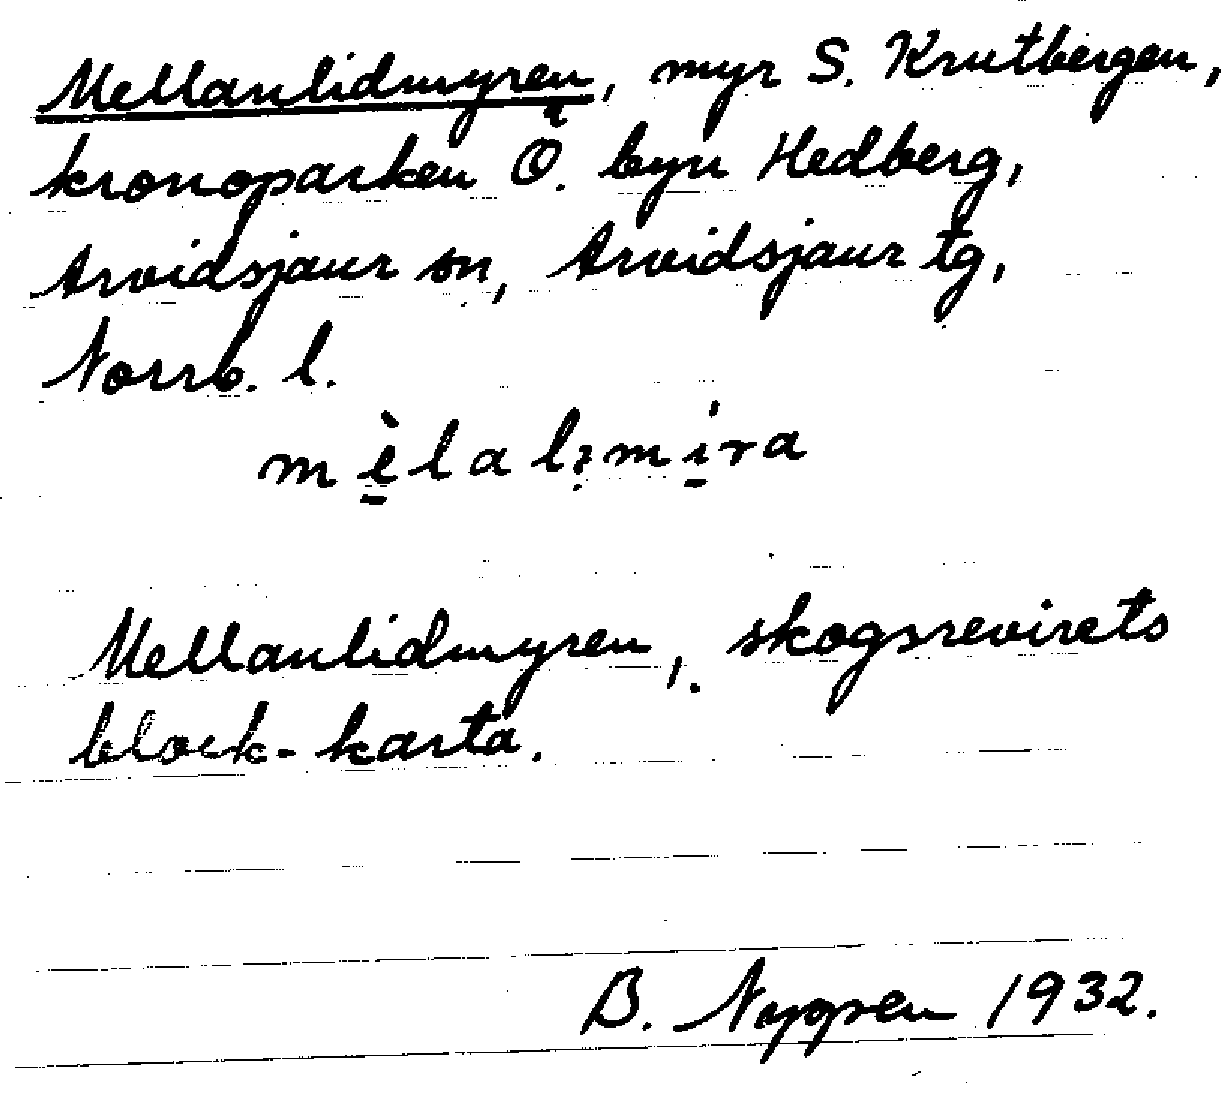 Mellanlidmyren, myr S. Krutbergen,
kronoparken Ö. byn Hedberg,
Arvidsjaur sn, Arvidsjaur tg,
Norrb. l.
Mellanlidmyren, skogsrevirets
block-karta.
B. 1932.